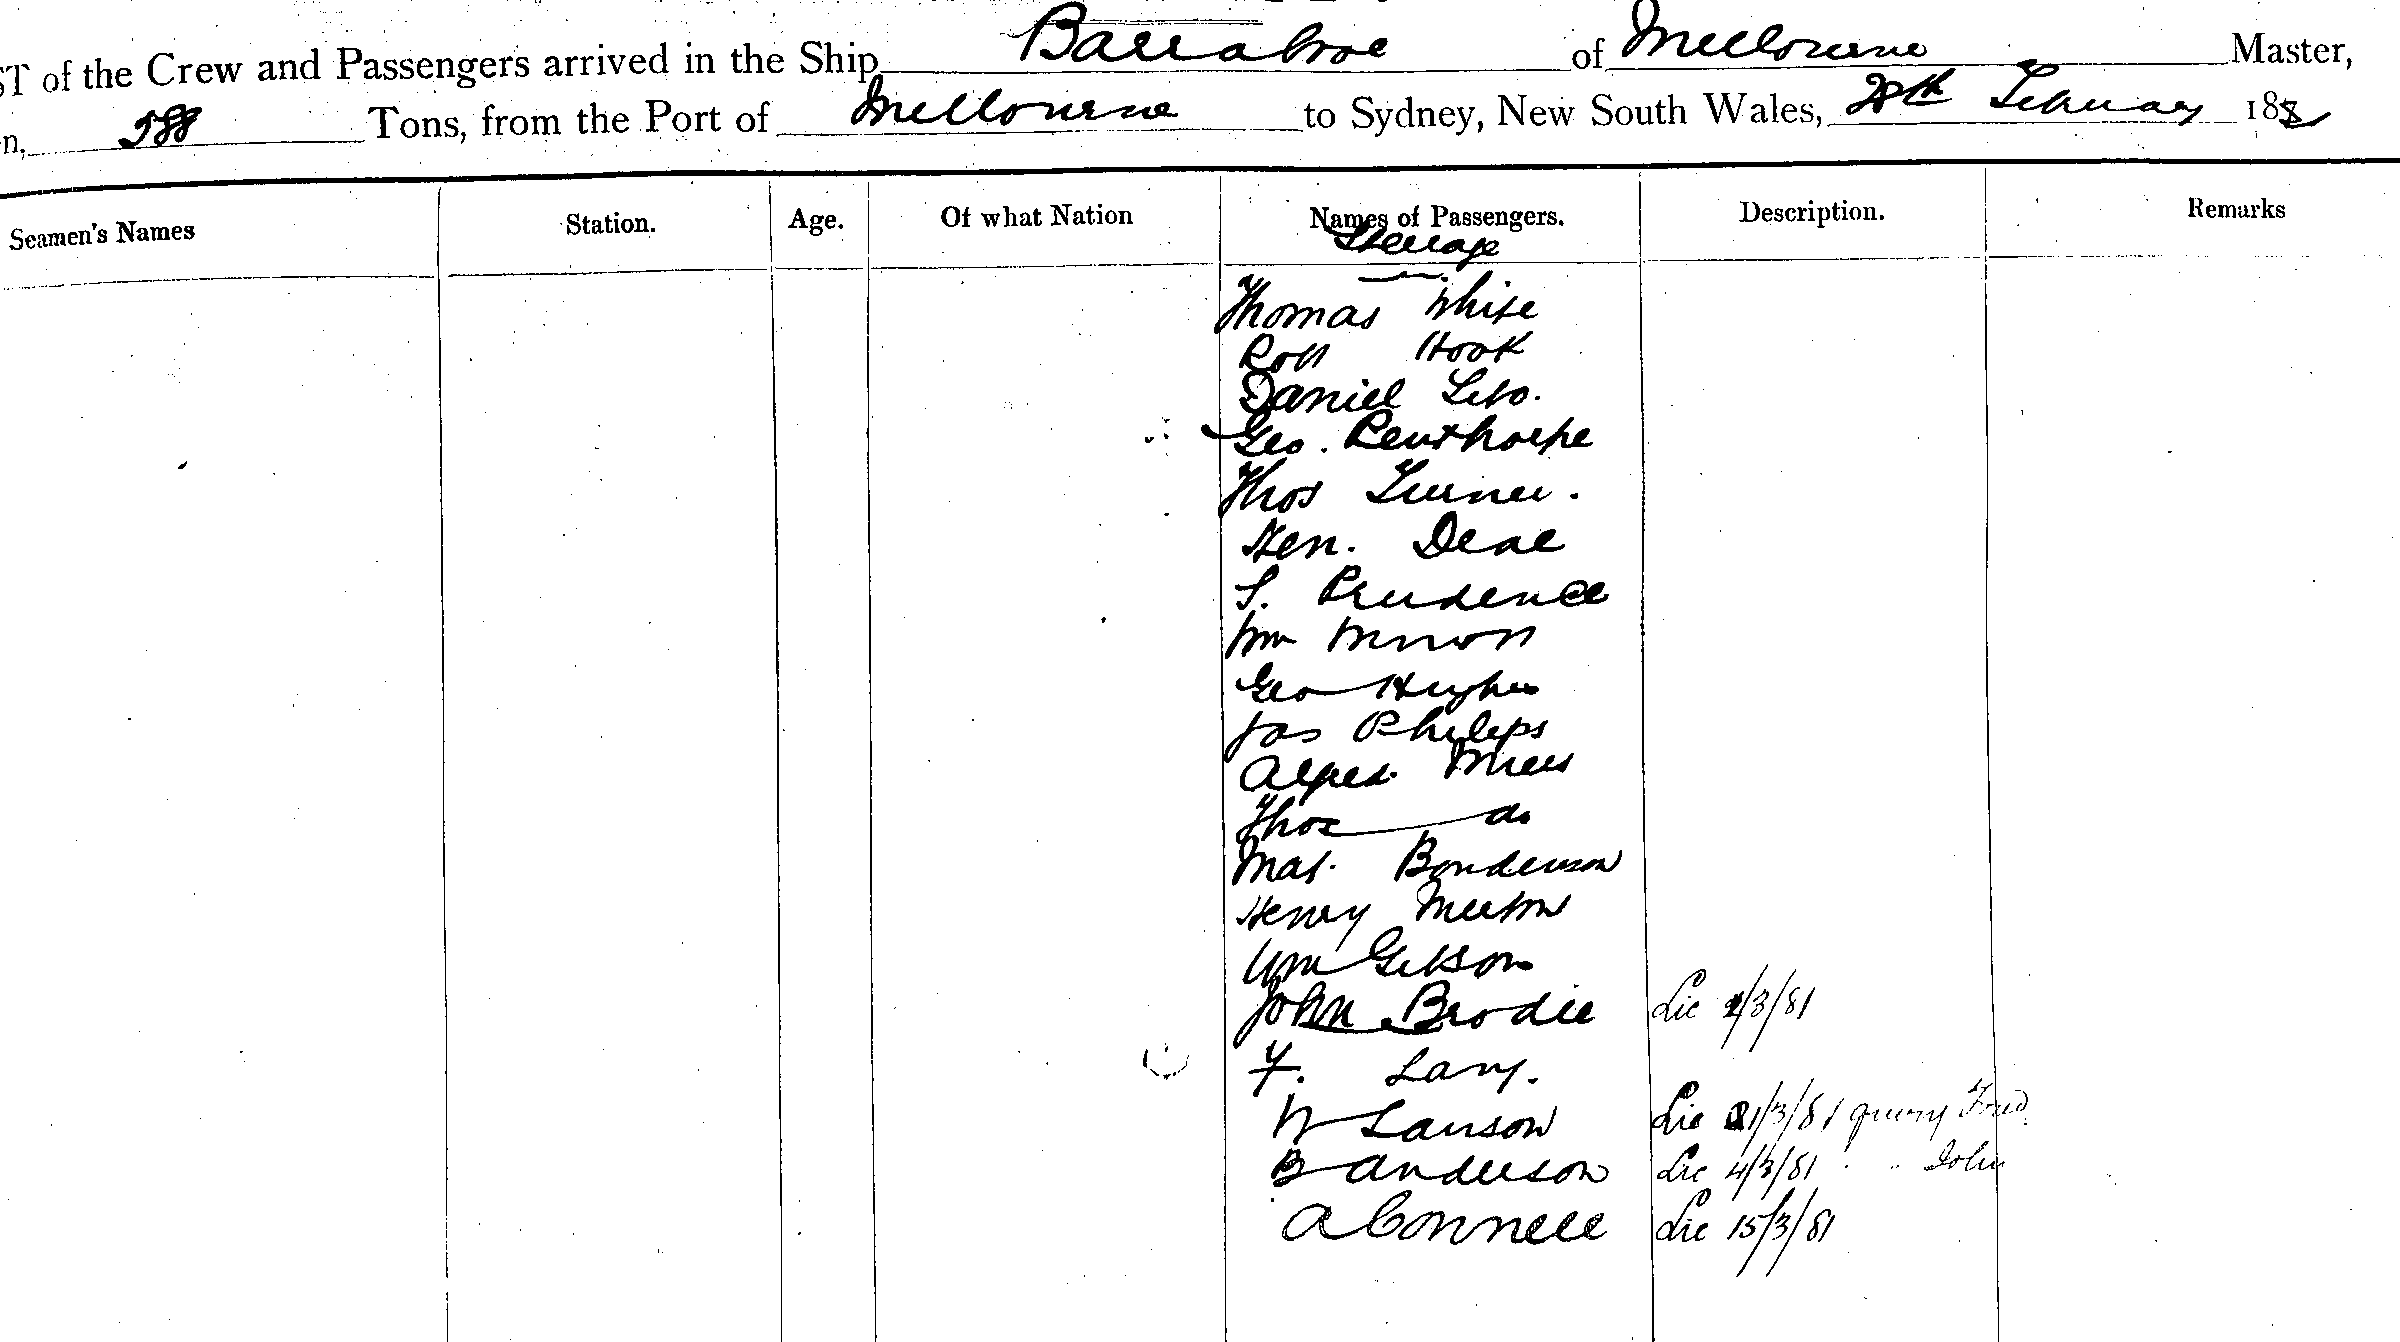 ST of the Crew and Passengers arrived in the Ship Barrabool of Melbourne Master,
n, 588 Tons, from the Port of Melbourne to Sydney, New South Wales, 28th February 188
Seamen's Names Station. Age. Of what Nation Names of Passengers. Description. Remarks
Steerage
Thomas White
Robt Hook
Daniel
Geo. Penthorpe
Thos Turner.
Hen. Deal
S. Prudence
Wm
Geo Hughes
Jas Philips
Alfred Miles
Thos do
Mat. Bonderson
Henry Merton
Wm Gibson
John Brodie Lic 1/3/81
F. Lang.
W Lawson Lic 21/3/81 query Fred
B Anderson Lic 4/3/81 " " John
A Connell Lic 15/3/81